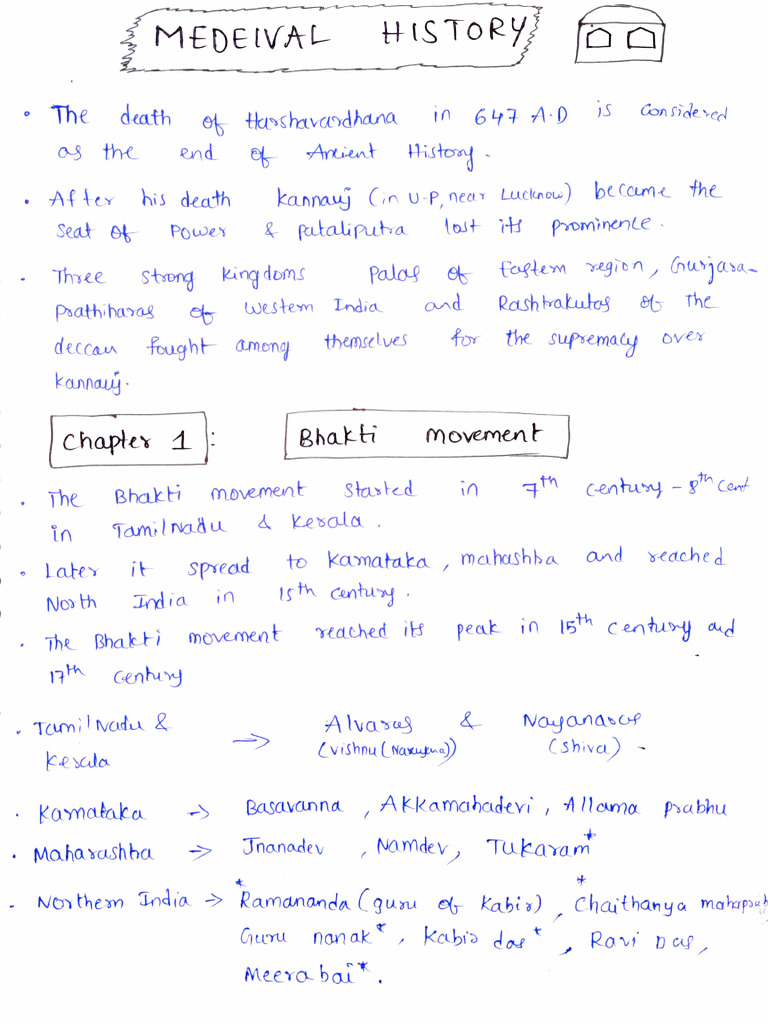 MEDEIVAL HISTORY
• The death of Harshavardhana in 647 A.D is considered
as the end of Ancient History.
• After his death kannauj (in U.P, near Lucknow) became the
seat of power & pataliputra lost its prominence.
• Three strong kingdoms palas of Eastern region, Gurjara-
prathiharas of western India and Rashtrakutas of the
deccan fought among themselves for the supremacy over
kannauj.
Chapter 1 : Bhakti movement
• The Bhakti movement started in 7th century - 8th cent
in TamilNadu & Kerala.
• Later it spread to Karnataka, mahashtra and reached
North India in 15th century.
• The Bhakti movement reached its peak in 15th century and
17th century
• TamilNadu & → Alvaras & Nayanaras
Kerala (vishnu (Narayana)) (shiva)
• Karnataka → Basavanna, Akkamahadevi, Allama prabhu
• Maharashtra → Jnanadev, Namdev, Tukaram*
• Northern India → *Ramananda (guru of Kabir), *Chaithanya mahaprab
Guru nanak*, Kabir das*, Ravi Das,
Meerabai*.